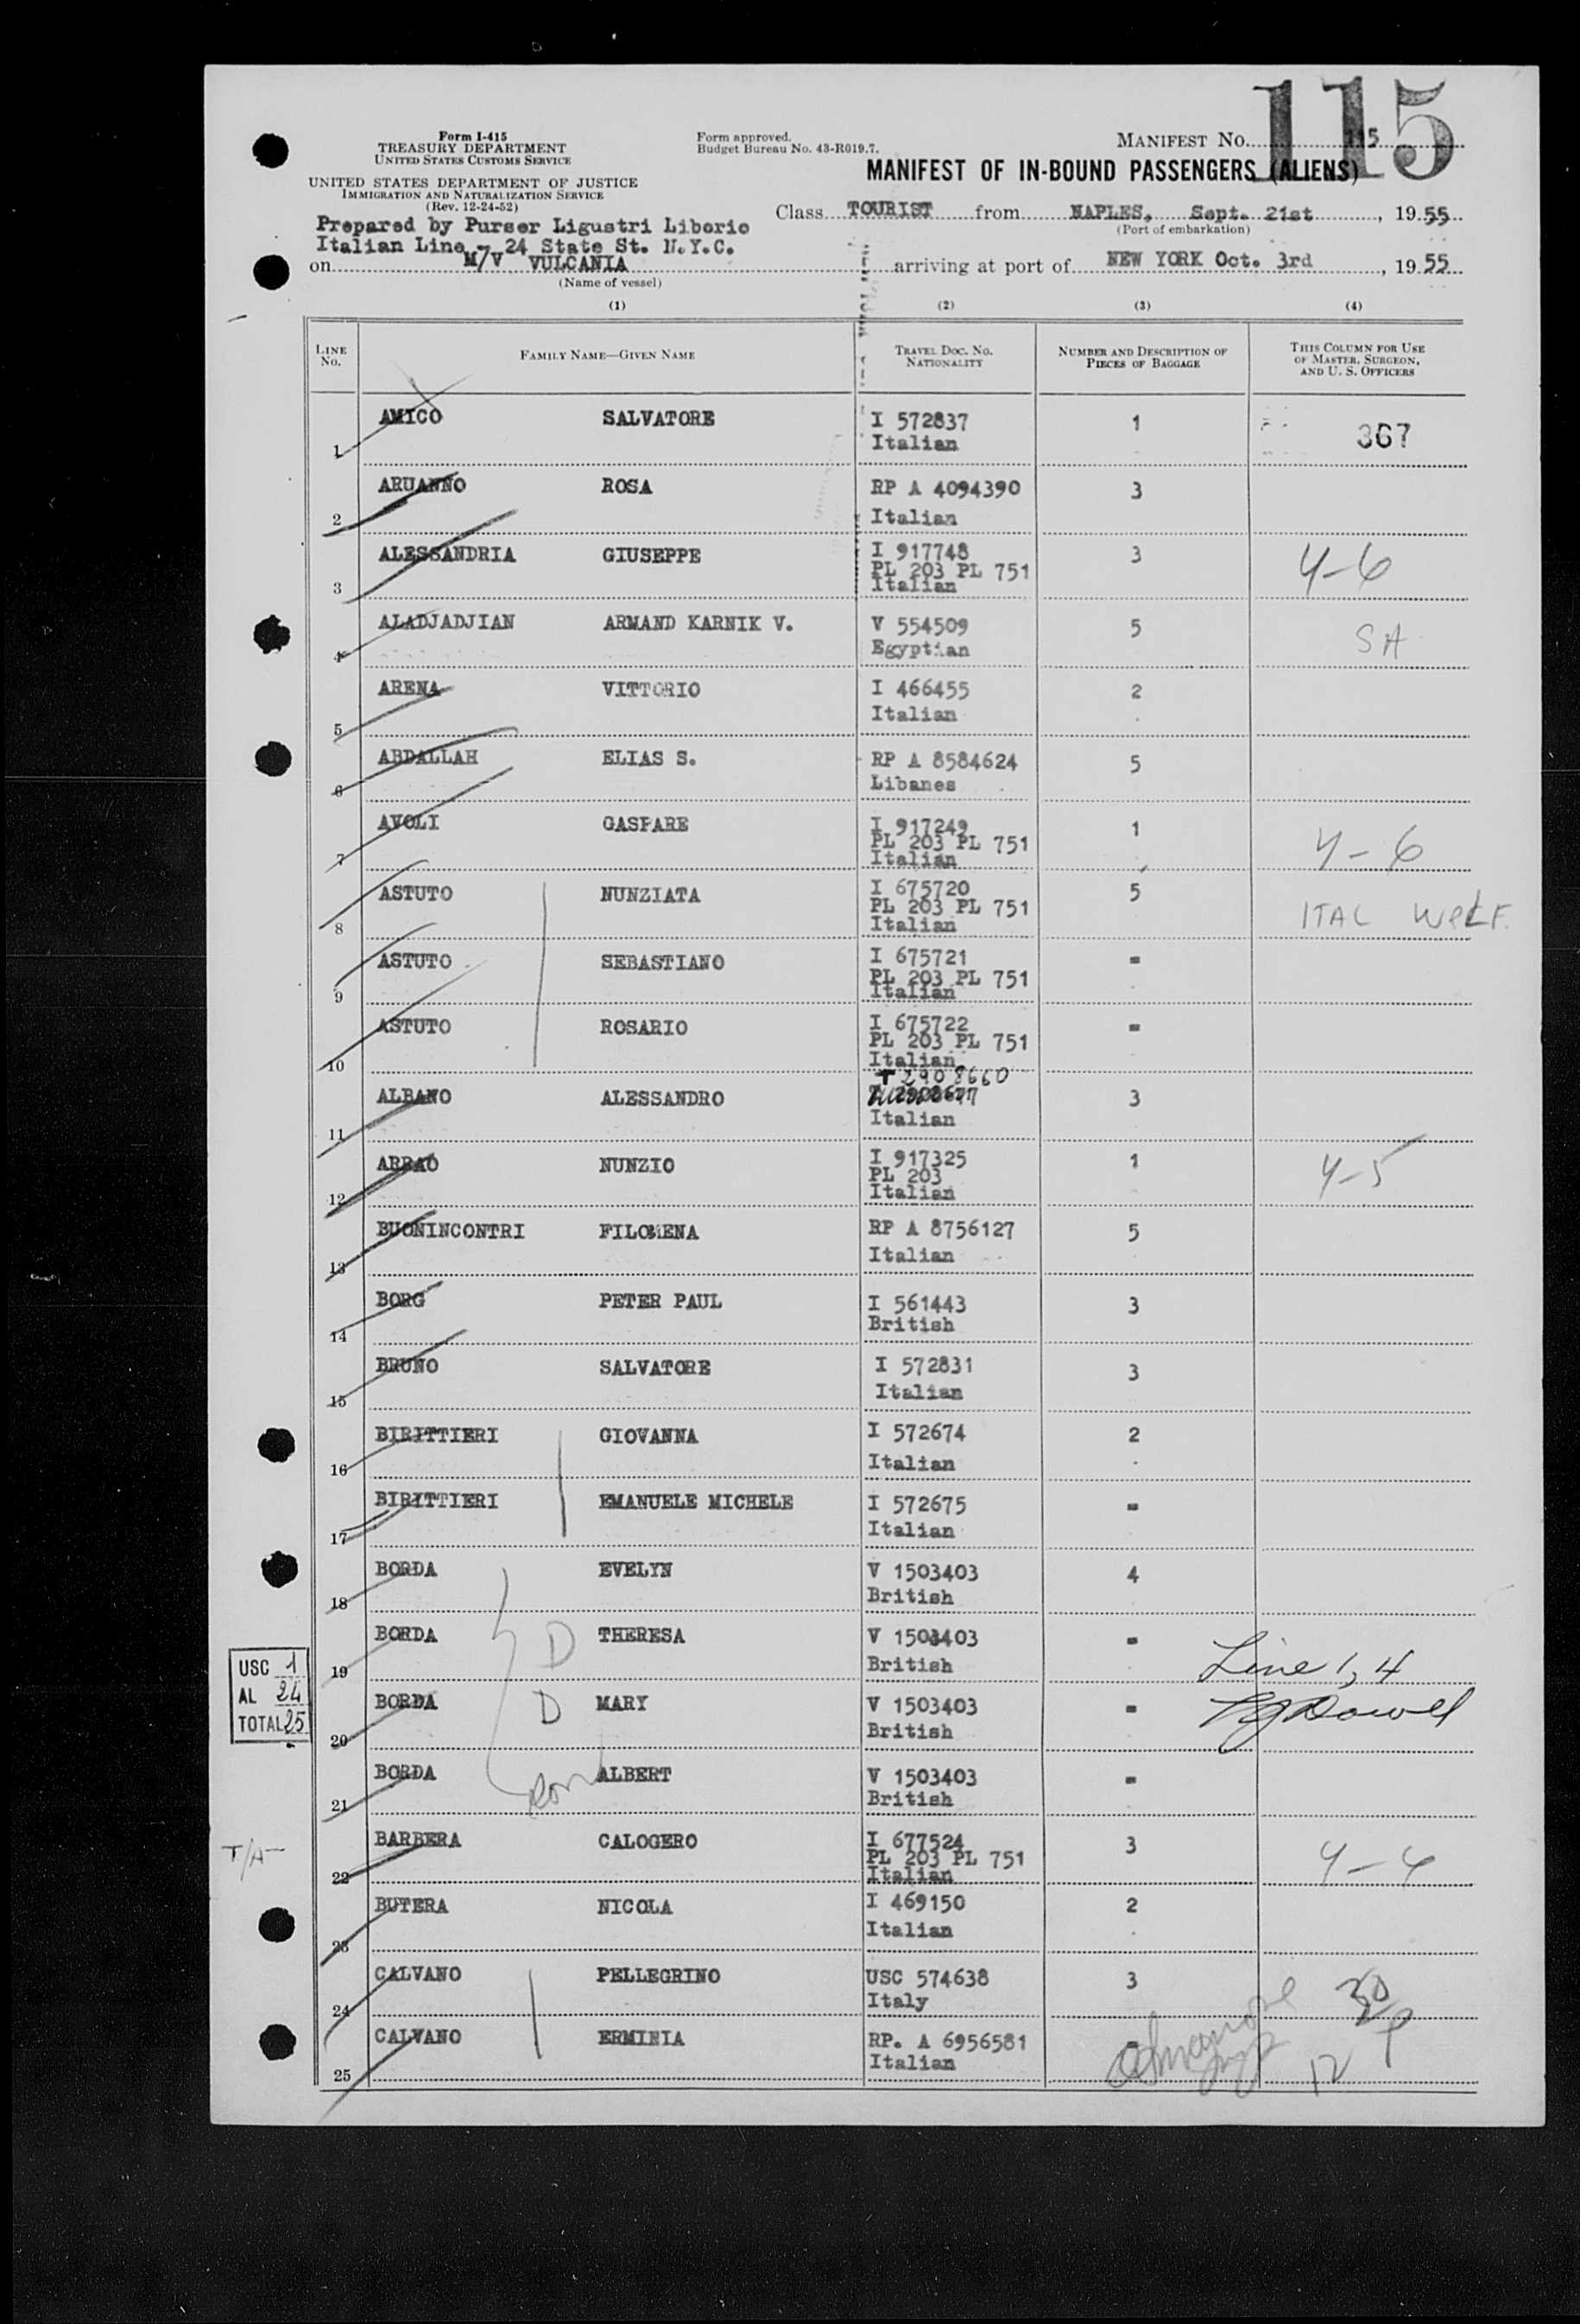 115
Form I-415
TREASURY DEPARTMENT
UNITED STATES CUSTOMS SERVICE
Form approved.
Budget Bureau No. 43-R019.7.
MANIFEST No. 115
MANIFEST OF IN-BOUND PASSENGERS (ALIENS)
UNITED STATES DEPARTMENT OF JUSTICE
IMMIGRATION AND NATURALIZATION SERVICE
(Rev. 12-24-52)
Class TOURIST from NAPLES, Sept. 21st, 1955
(Port of embarkation)
Prepared by Purser Ligustri Liborio
Italian Line - 24 State St. N.Y.C.
on M/V VULCANIA arriving at port of NEW YORK Oct. 3rd, 1955
(Name of vessel)
(1) (2) (3) (4)
LINE No. FAMILY NAME—GIVEN NAME TRAVEL DOC. No. NATIONALITY NUMBER AND DESCRIPTION OF PIECES OF BAGGAGE THIS COLUMN FOR USE OF MASTER, SURGEON, AND U. S. OFFICERS
1 AMICO SALVATORE I 572837 1 367
Italian
2 ARUANNO ROSA RP A 4094390 3
Italian
3 ALESSANDRIA GIUSEPPE I 917748 3 4-6
PL 203 PL 751
Italian
4 ALADJADJIAN ARMAND KARNIK V. V 554509 5 SA
Egyptian
5 ARENA VITTORIO I 466455 2
Italian
6 ABDALLAH ELIAS S. RP A 8584624 5
Libanes
7 AVOLI GASPARE I 917249 1 4-6
PL 203 PL 751
Italian
8 ASTUTO NUNZIATA I 675720 5 ITAL WELF.
PL 203 PL 751
Italian
9 ASTUTO SEBASTIANO I 675721 =
PL 203 PL 751
Italian
10 ASTUTO ROSARIO I 675722 =
PL 203 PL 751
Italian
T 2908660
11 ALBANO ALESSANDRO 3
Italian
12 ABBAO NUNZIO I 917325 1 4-5
PL 203
Italian
13 BUONINCONTRI FILOMENA RP A 8756127 5
Italian
14 BORG PETER PAUL I 561443 3
British
15 BRUNO SALVATORE I 572831 3
Italian
16 BIRITTIERI GIOVANNA I 572674 2
Italian
17 BIRITTIERI EMANUELE MICHELE I 572675 =
Italian
18 BORDA EVELYN V 1503403 4
British
19 BORDA D THERESA V 1503403 = Line 1, 4
British
20 BORDA D MARY V 1503403 =
British
21 BORDA ALBERT V 1503403 =
British
22 BARBERA CALOGERO I 677524 3 4-4
PL 203 PL 751
Italian
23 BUTERA NICOLA I 469150 2
Italian
24 CALVANO PELLEGRINO USC 574638 3 30
Italy
25 CALVANO ERMINIA RP. A 6956581 12
Italian
USC 1
AL 24
TOTAL 25
T/A